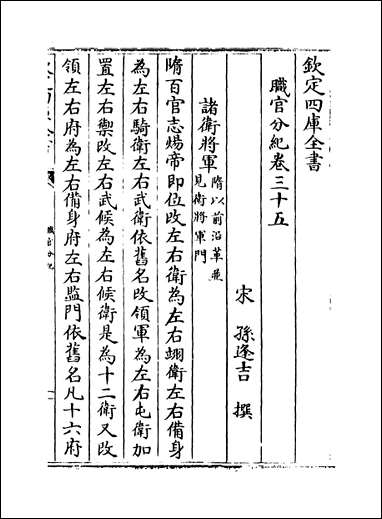 欽定四庫全書
職官分紀卷三十五
宋 孫逢吉 撰
諸衛將軍隋以前沿革兼
見衛將軍門
隋百官志煬帝即位改左右衛為左右翊衛左右備身
為左右騎衛左右武衛依舊名改領軍為左右屯衛加
置左右禦改左右武候為左右候衛是為十二衛又改
領左右府為左右備身府左右監門依舊名凡十六府
職官分紀
一